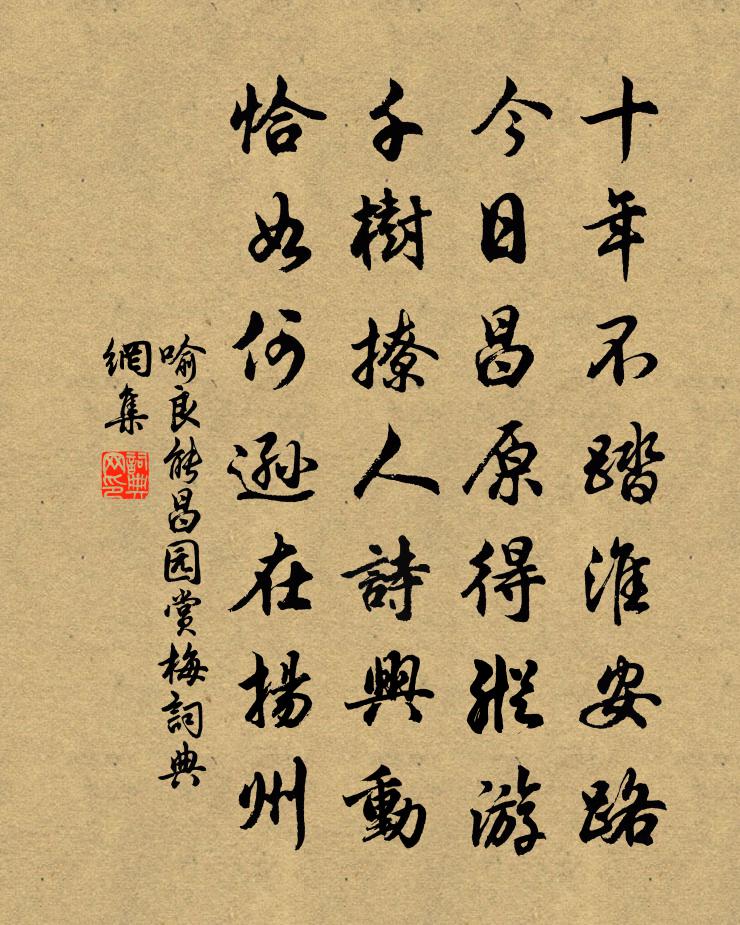 十年不踏淮安路
今日昌原得縱游
千樹撩人詩興動
恰如何遜在揚州
喻良能昌园赏梅詞典
網集
詞典
网印